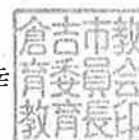 倉吉市教
育委員会
教育長印